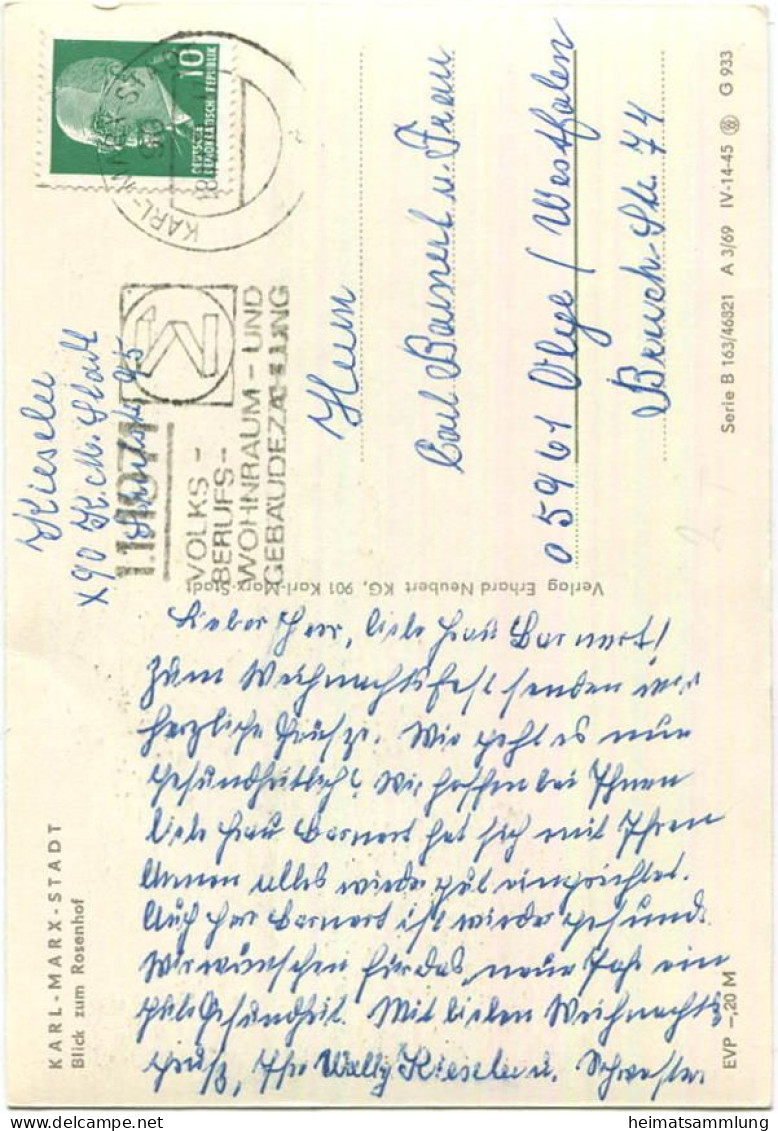 KARL-MARX-STADT
Blick zum Rosenhof
Kieseler
X90 K.M. Stadt
95
10
DEUTSCHE
DEMOKRATISCHE REPUBLIK
KARL-MARX-STADT
1.1.1971
VOLKS-
BERUFS-
WOHNRAUM-UND
GEBÄUDEZÄHLUNG
Verlag Erhard Neubert KG, 901 Karl-Marx-Stadt
Lieber Herr, liebe Frau Barnert!
Zum Weihnachtsfest senden wir
herzliche Grüsze. Wie geht es nun
gesundheitlich? Wir hoffen bei Ihnen
liebe Frau Barnert hat sich mit Ihren
Armen alles wieder gut eingerichtet.
Auch Herr Barnert ist wieder gesund.
Wir wünschen für das neue Jahr ein
gute Gesundheit. Mit lieben Weihnachts
gruß, Ihre Wally Kieseler u. Schwester
Herrn
Carl Barnert u. Frau
05961 Olpe / Westfalen
Bruch-Str. 74
EVP -,20 M
Serie B 163/46821 A 3/69 IV-14-45 G 933
heimatsammlung